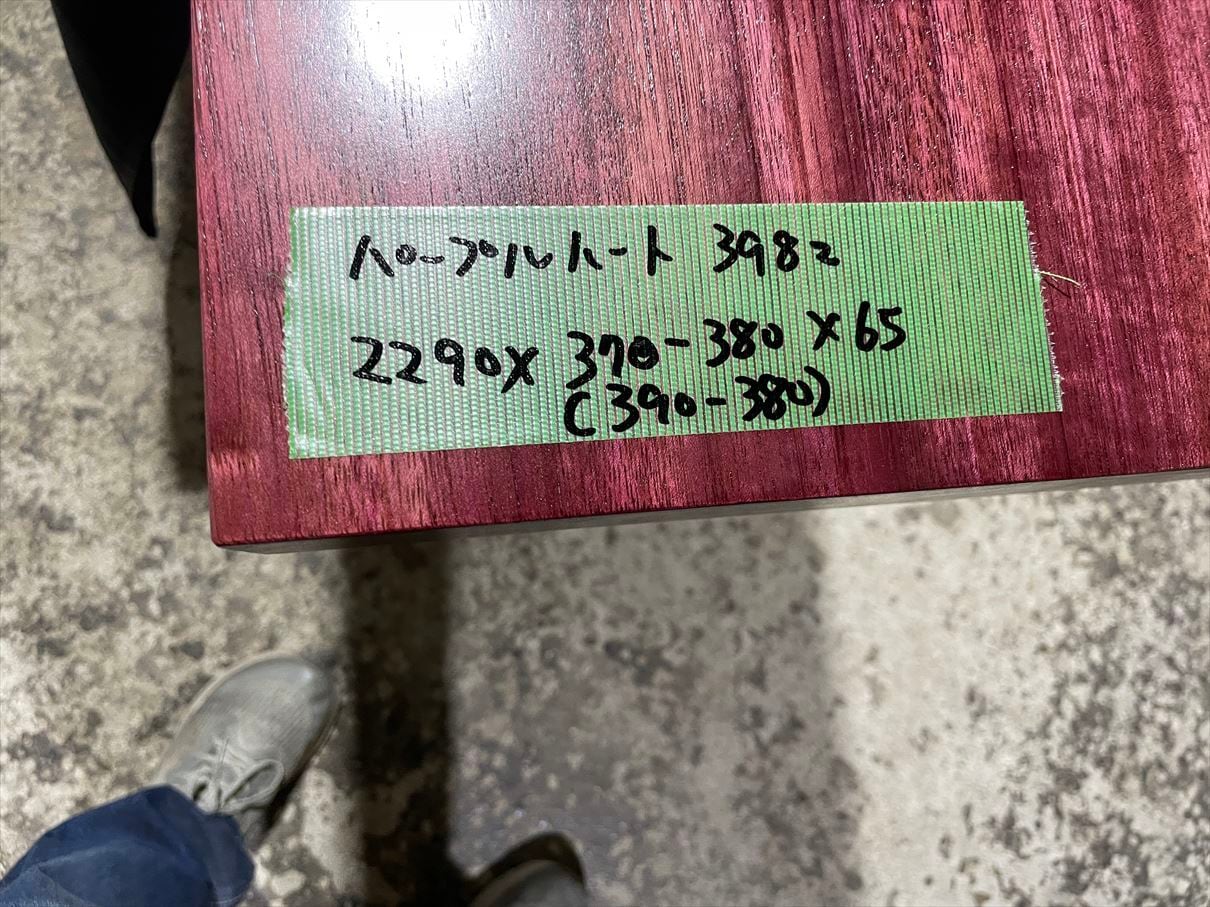 パープルハート 3982
2290×370-380×65
(390-380)